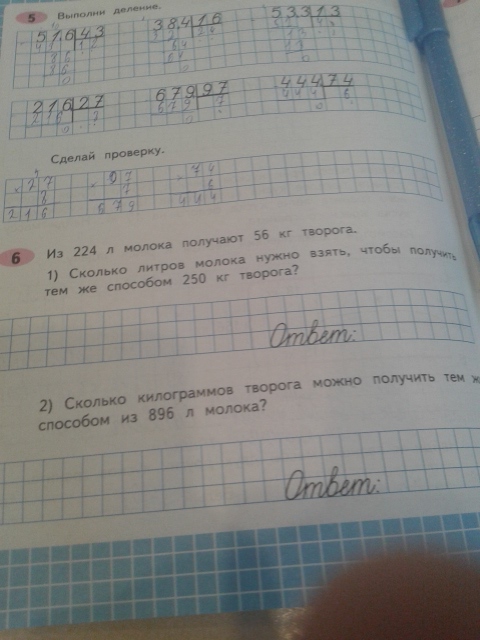 5 Выполни деление.
516 43 384 16 533 13
216 27 679 97 444 74
216 679 7 444 6
0 0 0
Сделай проверку.
× 27 × 97 × 74
8 7 6
216 679 444
6 Из 224 л молока получают 56 кг творога.
1) Сколько литров молока нужно взять, чтобы получить
тем же способом 250 кг творога?
Ответ:
2) Сколько килограммов творога можно получить тем ж
способом из 896 л молока?
Ответ: